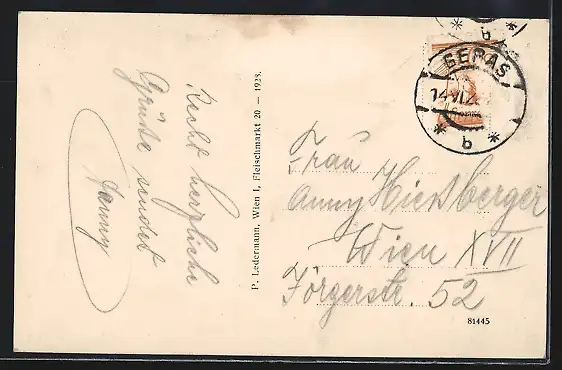 Recht herzliche
Grüße sendet
Hanny
P. Ledermann, Wien I, Fleischmarkt 20 — 1928.
b
GERAS
14.VI.2
b
Frau
Anny Hickberger
Wien XVII
Jörgerstr. 52
81445